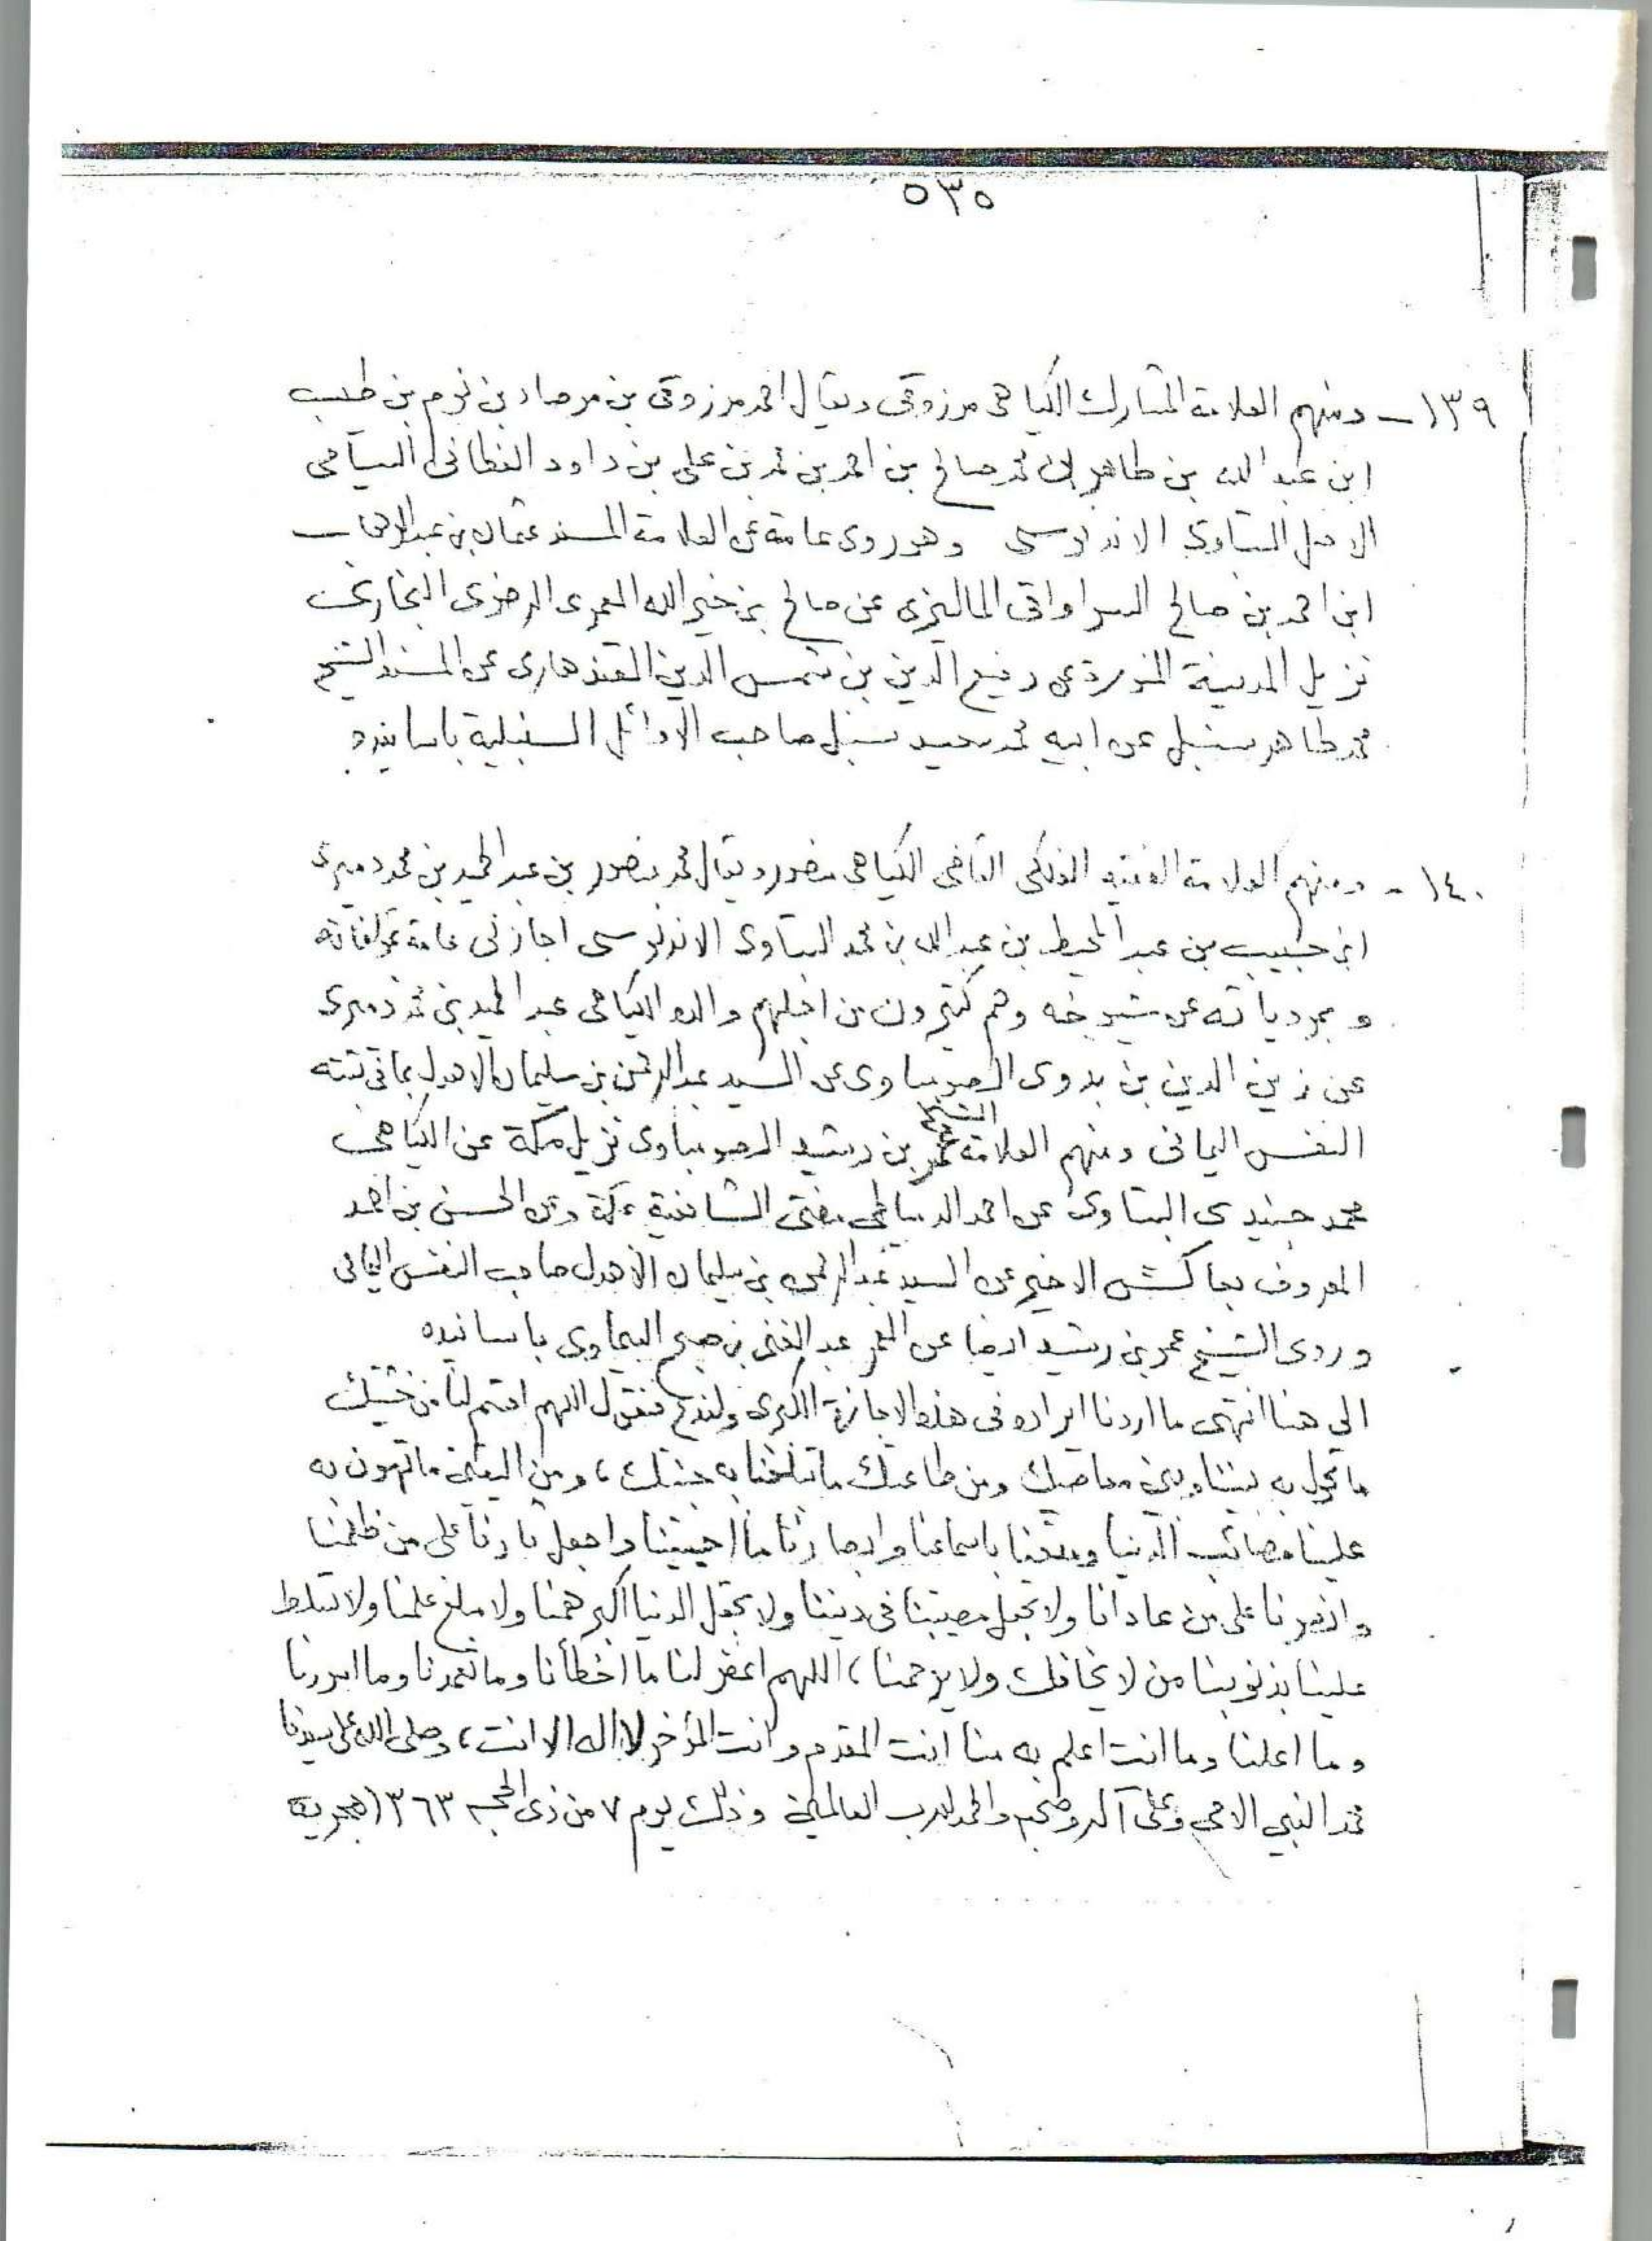 ٥٣٥
١٣٩ – ومنهم العلامة المشارك الكياهى مرزوقى ويقال احمد مرزوقى بن مرصاد بن نوم بن طيب
ابن عبد الله بن طاهر بن محمد صالح بن احمد بن محمد بن على بن داود الفطانى السيامى
الاصل البتاوى الاندنوسى وهو روى عامة عن العلامة المسند عثمان بن عبد الوهاب
ابن احمد بن صالح السراواقى الماليزى عن صالح بن خير الله العمرى الرضوى البخارى
نزيل المدينة المنورة عن رفيع الدين بن شمس الدين القندهارى عن المسند الشيخ
محمد طاهر سنبل عن ابيه محمد سعيد سنبل صاحب الاوائل السنبلية باسانيده
١٤٠ - ومنهم العلامة الفقيه الفلكى القاضى الكياهى منصور ويقال محمد منصور بن عبد الحميد بن محمد دميرى
ابن حبيب بن عبد المحيط بن عبد الله بن محمد البتاوى الاندنوسى اجازنى عامة بمؤلفاته
و بمروياته عن شيوخه وهم كثيرون من اجلهم والده الكياهى عبد الحميد بن محمد دميرى
عن زين الدين بن بدوى الصومباوى عن السيد عبد الرحمن بن سليمان الاهدل بما فى ثبته
النفس اليمانى ومنهم العلامة الشيخ عمر بن رشيد الصومباوى نزيل مكة عن الكياهى
محمد جنيدى البتاوى عن احمد الدمياطى مفتى الشافعية بمكة وعن الحسن بن احمد
المعروف بعاكش الاخير عن السيد عبد الرحمن بن سليمان الاهدل صاحب النفس اليمانى
وروى الشيخ عمر بن رشيد ايضا عن المعمر عبد الغنى بن صبح البيماوى باسانيده
الى هنا انتهى ما اردنا ايراده فى هذه الاجازة الكبرى ولندع فنقول اللهم اقسم لنا من خشيتك
ما تحول به بيننا وبين معاصيك ومن طاعتك ما تبلغنا به جنتك ، ومن اليقين ما تهون به
علينا مصائب الدنيا ومتعنا باسماعنا وابصارنا ما احييتنا واجعل ثأرنا على من ظلمنا
وانصرنا على من عادانا ولا تجعل مصيبتنا فى ديننا ولا تجعل الدنيا اكبر همنا ولا مبلغ علمنا ولا تسلط
علينا بذنوبنا من لا يخافك ولا يرحمنا ، اللهم اغفر لنا ما اخطأنا وما تعمدنا وما اسررنا
وما اعلنا وما انت اعلم به منا انت المقدم وانت المؤخر لا اله الا انت ، وصلى الله على سيدنا
محمد النبي الامى وعلى آله وصحبه والحمد لله رب العالمين وذلك يوم ٧ من ذى الحجه ١٣٦٣ هجرية